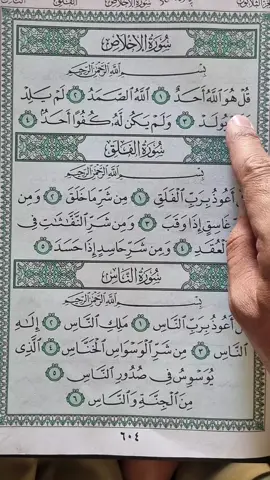 سُورَةُ الإِخْلَاصِ
بِسْمِ اللَّهِ الرَّحْمَٰنِ الرَّحِيمِ
قُلْ هُوَ اللَّهُ أَحَدٌ ١ اللَّهُ الصَّمَدُ ٢ لَمْ يَلِدْ
يُولَدْ ٣ وَلَمْ يَكُن لَّهُ كُفُوًا أَحَدٌ ٤
سُورَةُ الفَلَقِ
بِسْمِ اللَّهِ الرَّحْمَٰنِ الرَّحِيمِ
أَعُوذُ بِرَبِّ الْفَلَقِ ١ مِن شَرِّ مَا خَلَقَ ٢ وَمِن
غَاسِقٍ إِذَا وَقَبَ ٣ وَمِن شَرِّ النَّفَّاثَاتِ فِي
الْعُقَدِ ٤ وَمِن شَرِّ حَاسِدٍ إِذَا حَسَدَ ٥
سُورَةُ النَّاسِ
بِسْمِ اللَّهِ الرَّحْمَٰنِ الرَّحِيمِ
أَعُوذُ بِرَبِّ النَّاسِ ١ مَلِكِ النَّاسِ ٢ إِلَٰهِ
النَّاسِ ٣ مِن شَرِّ الْوَسْوَاسِ الْخَنَّاسِ ٤ الَّذِي
يُوَسْوِسُ فِي صُدُورِ النَّاسِ ٥
مِنَ الْجِنَّةِ وَالنَّاسِ ٦
٦٠٤